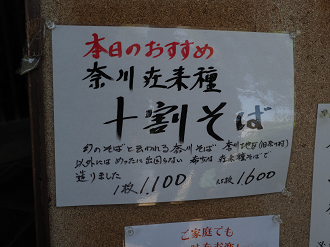 本日のおすすめ
奈川在来種
十割そば
幻のそばと云われる奈川そば 奈川地区(旧奈川村)
以外にはめったに出回らない 希少な在来種そばで
造りました
1枚 1,100 1.5枚 1,600
ご家庭でも